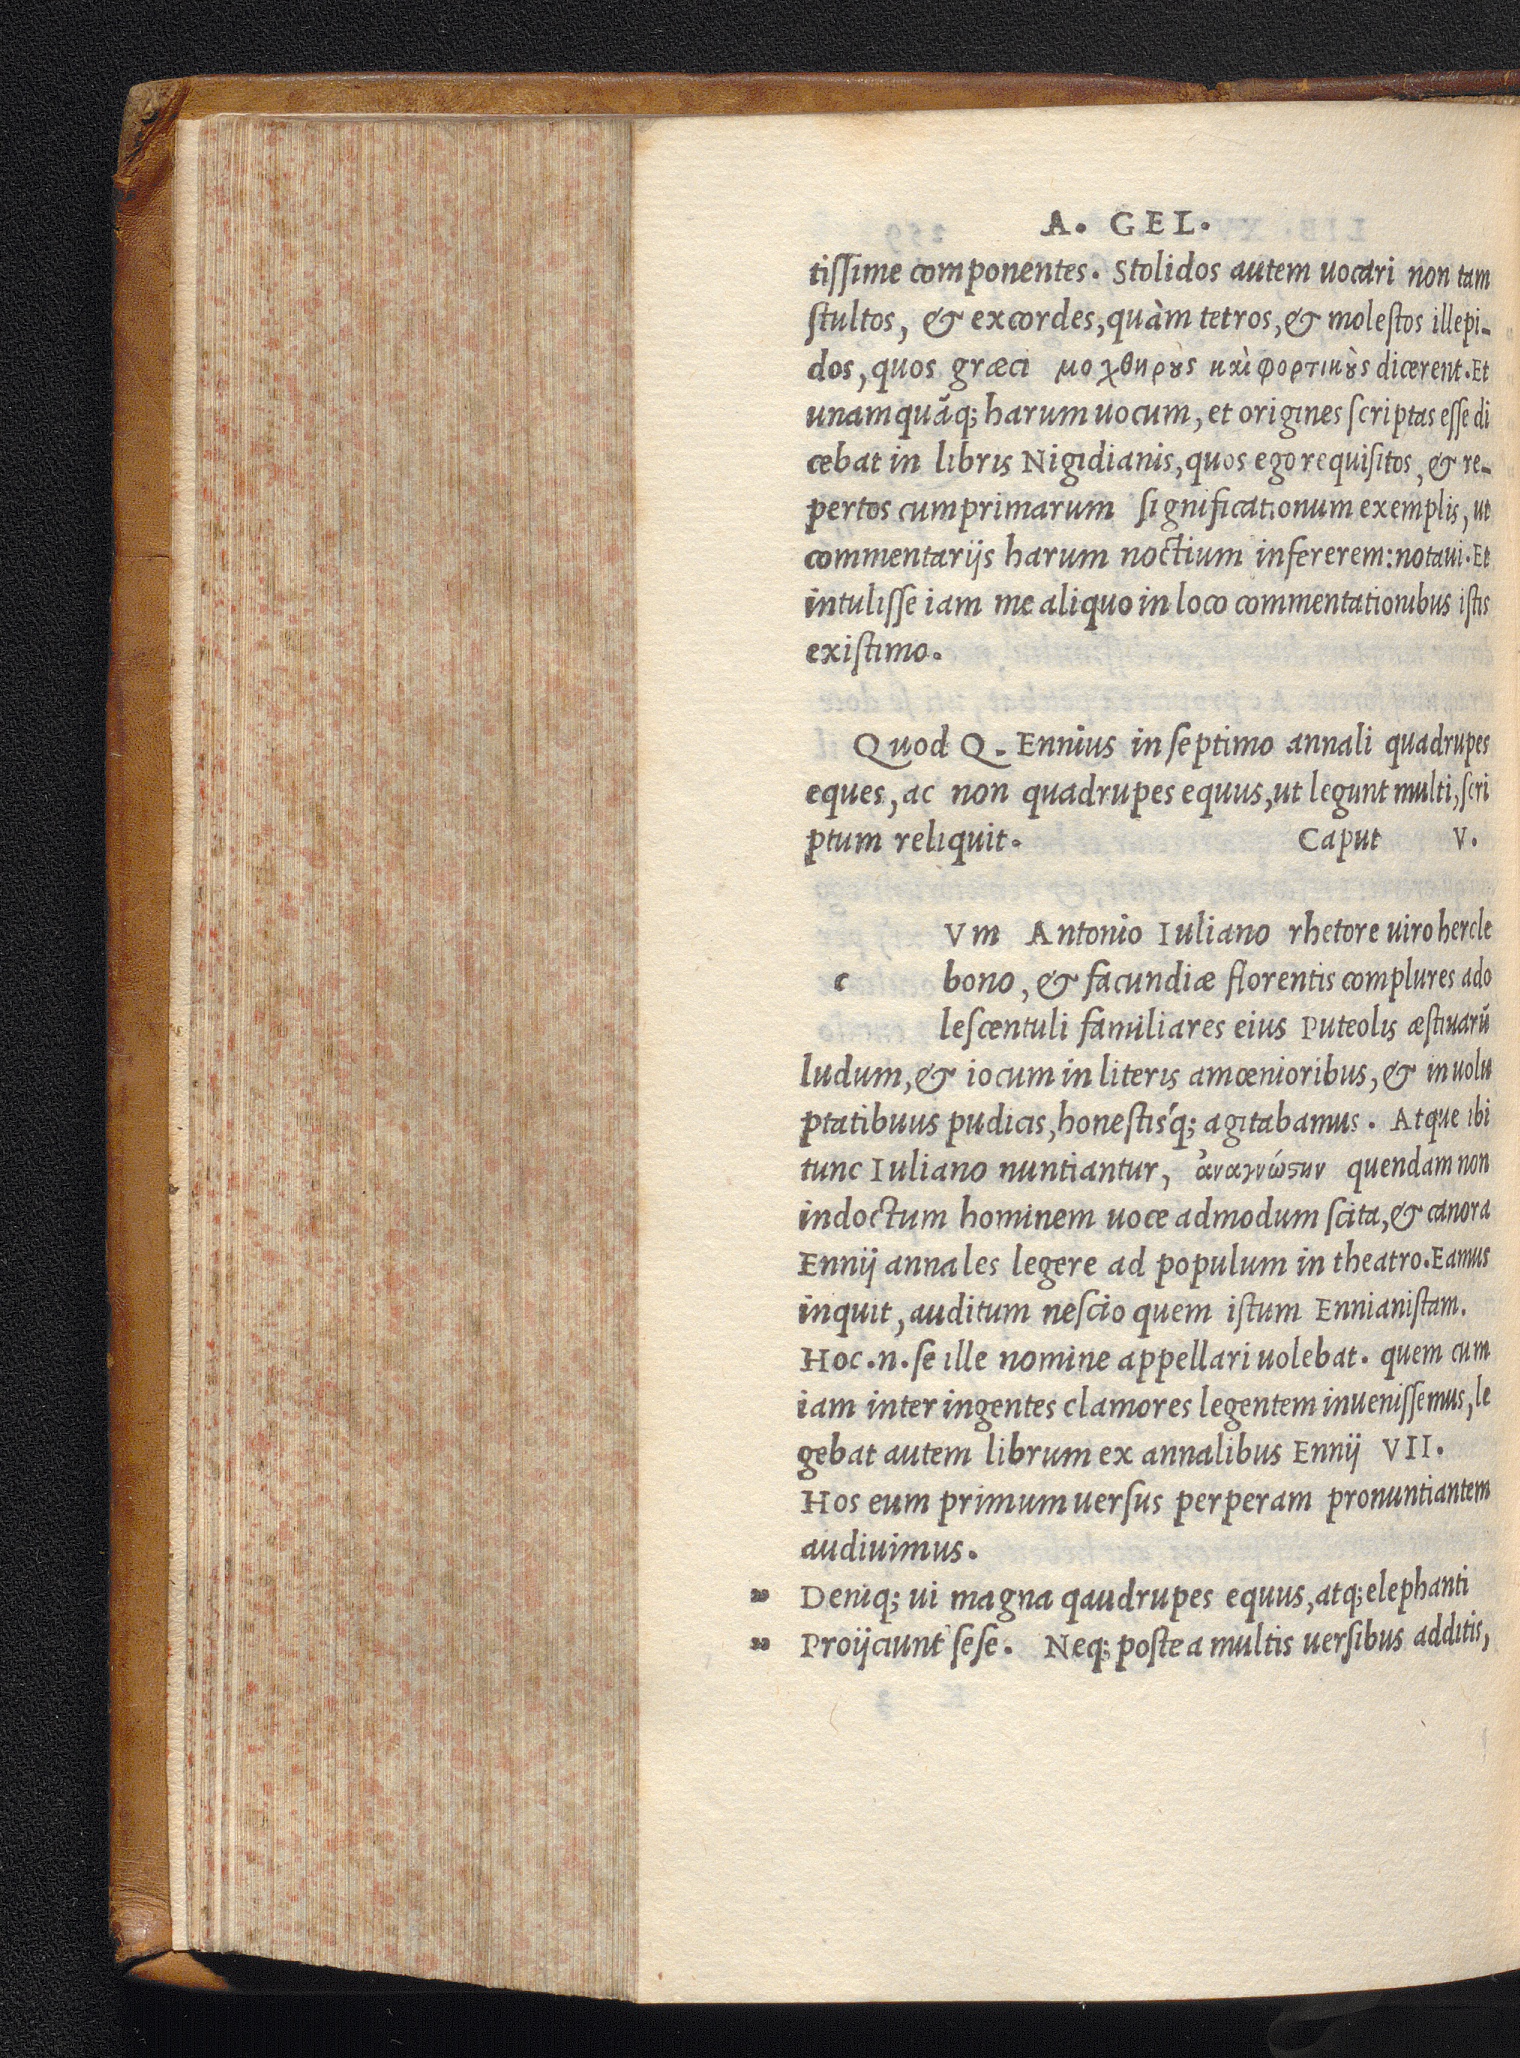 A. GEL.
tissime componentes. Stolidos autem uocari non tam
stultos, & excordes, quàm tetros, & molestos illepi-
dos, quos græci μοχθηροὺς καὶ φορτικοὺς dicerent. Et
unamquãq; harum uocum, et origines scriptas esse di
cebat in libris Nigidianis, quos ego requisitos, & re-
pertos cum primarum significationum exemplis, ut
commentarijs harum noctium infererem: notaui. Et
intulisse iam me aliquo in loco commentationibus istis
existimo.
Quod Q. Ennius in septimo annali quadrupes
eques, ac non quadrupes equus, ut legunt multi, scri
ptum reliquit. Caput V.
Vm Antonio Iuliano rhetore uiro hercle
c bono, & facundiæ florentis complures ado
lescentuli familiares eius Puteolis æstiuarũ
ludum, & iocum in literis amœnioribus, & in uolu
ptatibuus pudicis, honestisq́; agitabamus. Atque ibi
tunc Iuliano nuntiantur, ἀναγνώστην quendam non
indoctum hominem uoce admodum scita, & canora
Ennij annales legere ad populum in theatro. Eamus
inquit, auditum nescio quem istum Ennianistam.
Hoc .n. se ille nomine appellari uolebat. quem cum
iam inter ingentes clamores legentem inuenissemus, le
gebat autem librum ex annalibus Ennij VII.
Hos eum primum uersus perperam pronuntiantem
audiuimus.
„ Deniq; ui magna qaudrupes equus, atq; elephanti
„ Proijciunt sese. Neq; postea multis uersibus additis,